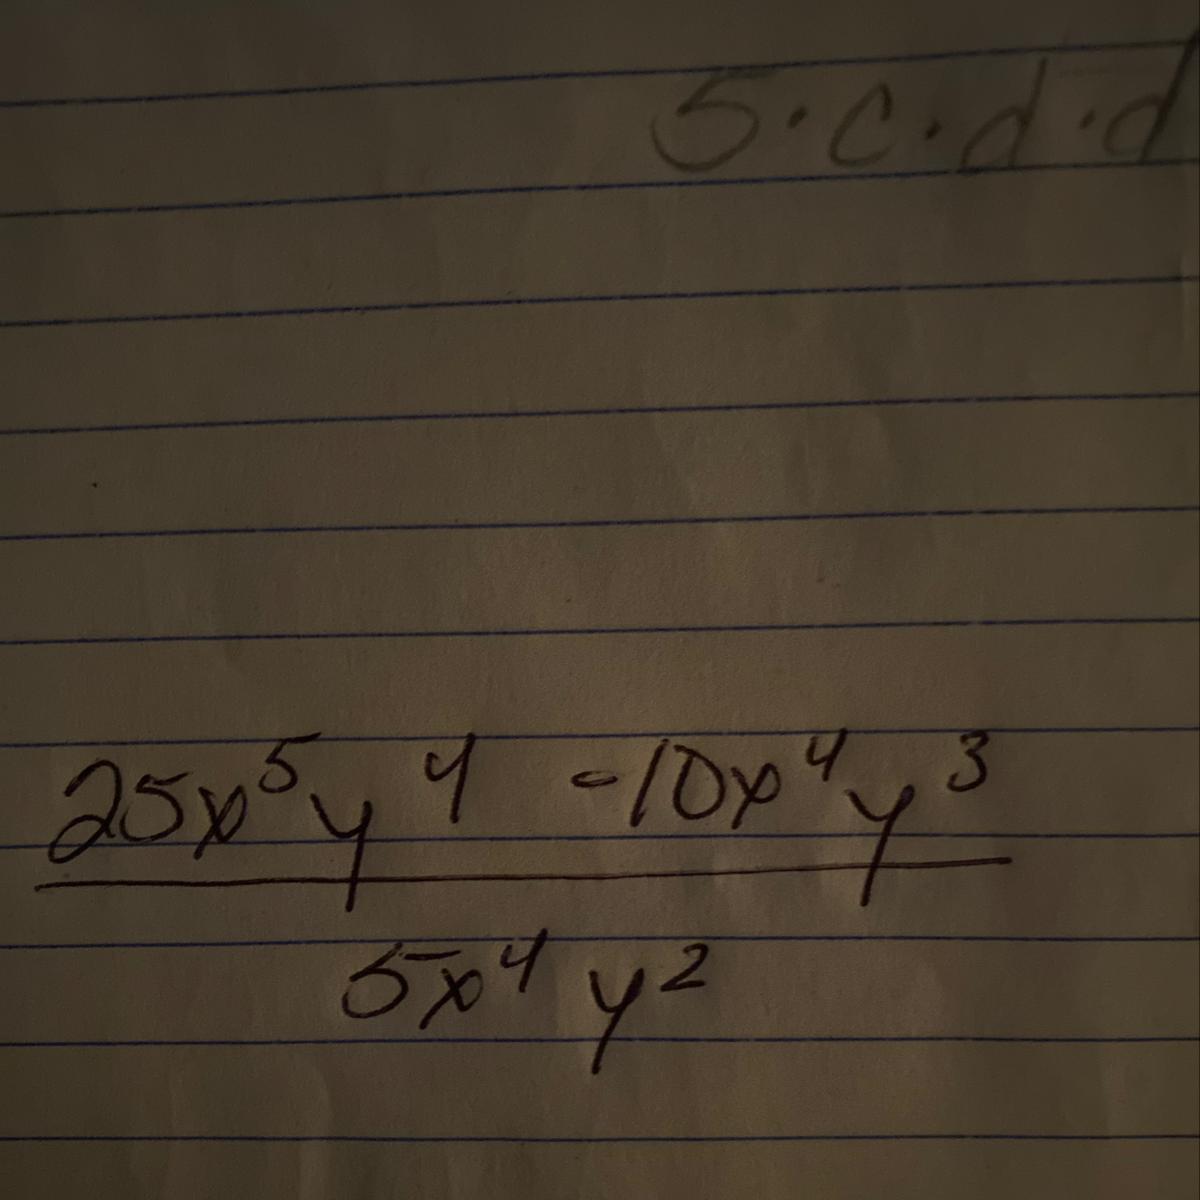 5·c·d·d
25x⁵y⁴ -10x⁴y³
5x⁴y²